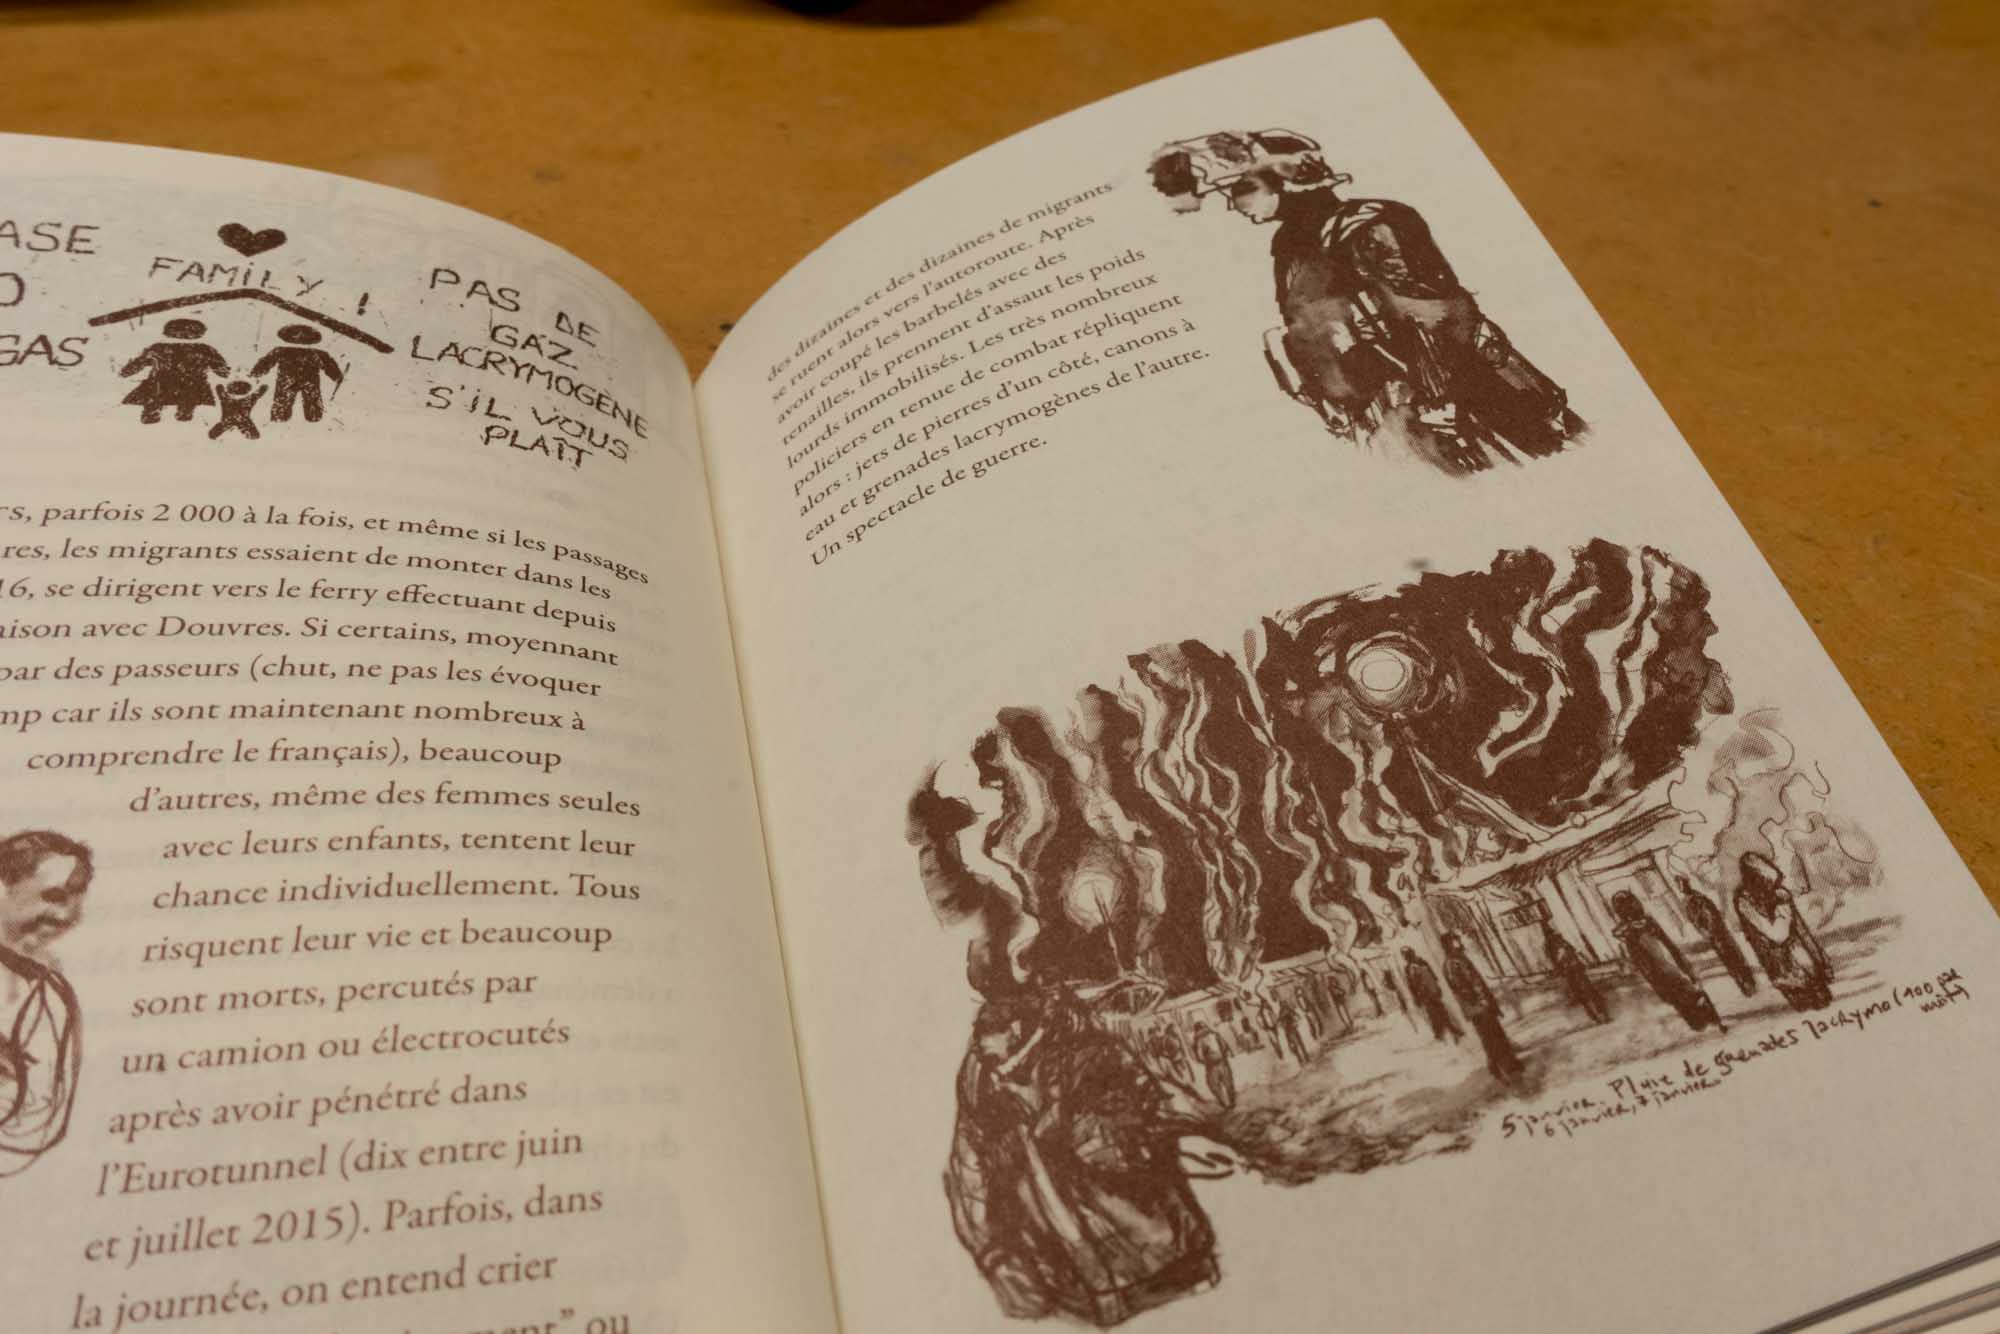 ASE
GAS
FAMiLY !
PAS DE
GAZ
LACRYMOGÈNE
S'iL VOUS
PLAÎT
rs, parfois 2 000 à la fois, et même si les passages
res, les migrants essaient de monter dans les
16, se dirigent vers le ferry effectuant depuis
aison avec Douvres. Si certains, moyennant
par des passeurs (chut, ne pas les évoquer
mp car ils sont maintenant nombreux à
comprendre le français), beaucoup
d'autres, même des femmes seules
avec leurs enfants, tentent leur
chance individuellement. Tous
risquent leur vie et beaucoup
sont morts, percutés par
un camion ou électrocutés
après avoir pénétré dans
l'Eurotunnel (dix entre juin
et juillet 2015). Parfois, dans
la journée, on entend crier
ment" ou
des dizaines et des dizaines de migrants
se ruent alors vers l'autoroute. Après
avoir coupé les barbelés avec des
tenailles, ils prennent d'assaut les poids
lourds immobilisés. Les très nombreux
policiers en tenue de combat répliquent
alors : jets de pierres d'un côté, canons à
eau et grenades lacrymogènes de l'autre.
Un spectacle de guerre.
5 janvier. Pluie de grenades lacrymo (100 par
nuit)
6 janvier, 7 janvier.